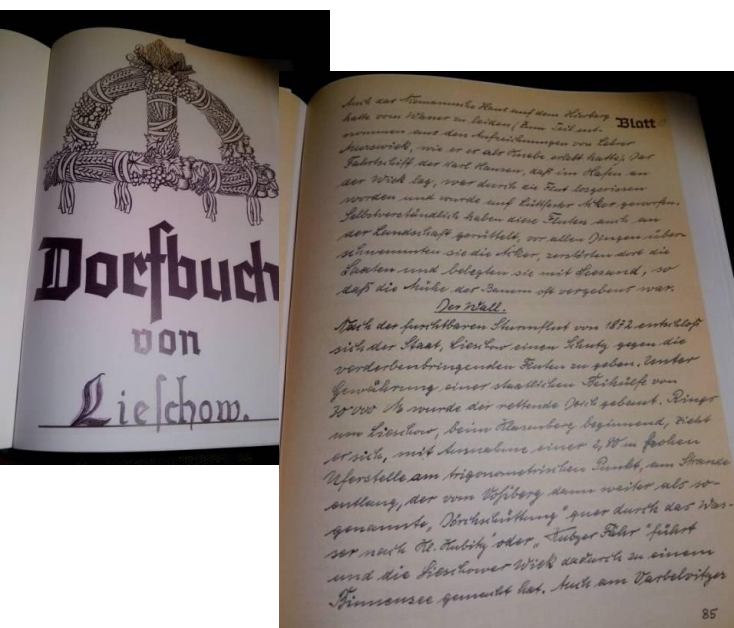 Dorfbuch
von
Lieschow.
Blatt
Auch das Niemannsche Haus auf dem Hinberg
hatte vom Wasser zu leiden (Zum Teil ent-
nommen aus den Aufzeichnungen von Lehrer
wie er es als Knabe erlebt hatte). Das
Fahrtschiff der Karl Hansen, daß im Hafen an
der Wiek lag, war durch die Flut losgerissen
worden und wurde auf Acker geworfen.
Selbstverständlich haben diese Fluten auch an
der Landschaft gerüttelt, vor allen Dingen über-
schwemmten sie die Äcker, zerstörten dort die
Saaten und belegten sie mit Seesand, so
daß die Mühe der Bauern oft vergebens war.
Der Wall.
Nach der furchtbaren Sturmflut von 1872 entschloß
sich der Staat, Lieschow einen Schutz gegen die
verderbenbringenden Fluten zu geben. Unter
Gewährung einer staatlichen Beihülfe von
70 000 M wurde der rettende Deich gebaut. Rings
um Lieschow, beim beginnend, zieht
er sich, mit Ausnahme einer 2,80 m hohen
Uferstelle am trigonometrischen Punkt, am Strande
entlang, der vom Voßberg dann weiter als so-
genannte „Deichschüttung" quer durch das Was-
ser nach Kl. Kubitz oder „ Fähr" führt
und die Lieschower Wiek dadurch zu einem
Binnensee gemacht hat. Auch am Varbelvitzer
85